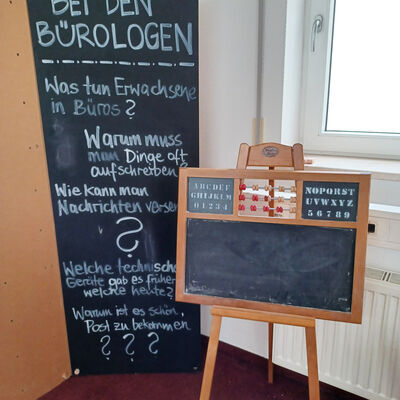 BEI DEN
BÜROLOGEN
Was tun Erwachsene
in Büros?
Warum muss
man Dinge oft
aufschreiben?
Wie kann man
Nachrichten versen
?
Welche technische
Geräte gab es früher
welche heute?
Warum ist es schön,
Post zu bekommen
? ? ?
ABCDEF
GHIJKLM
01234
NOPQRST
UVWXYZ
56789